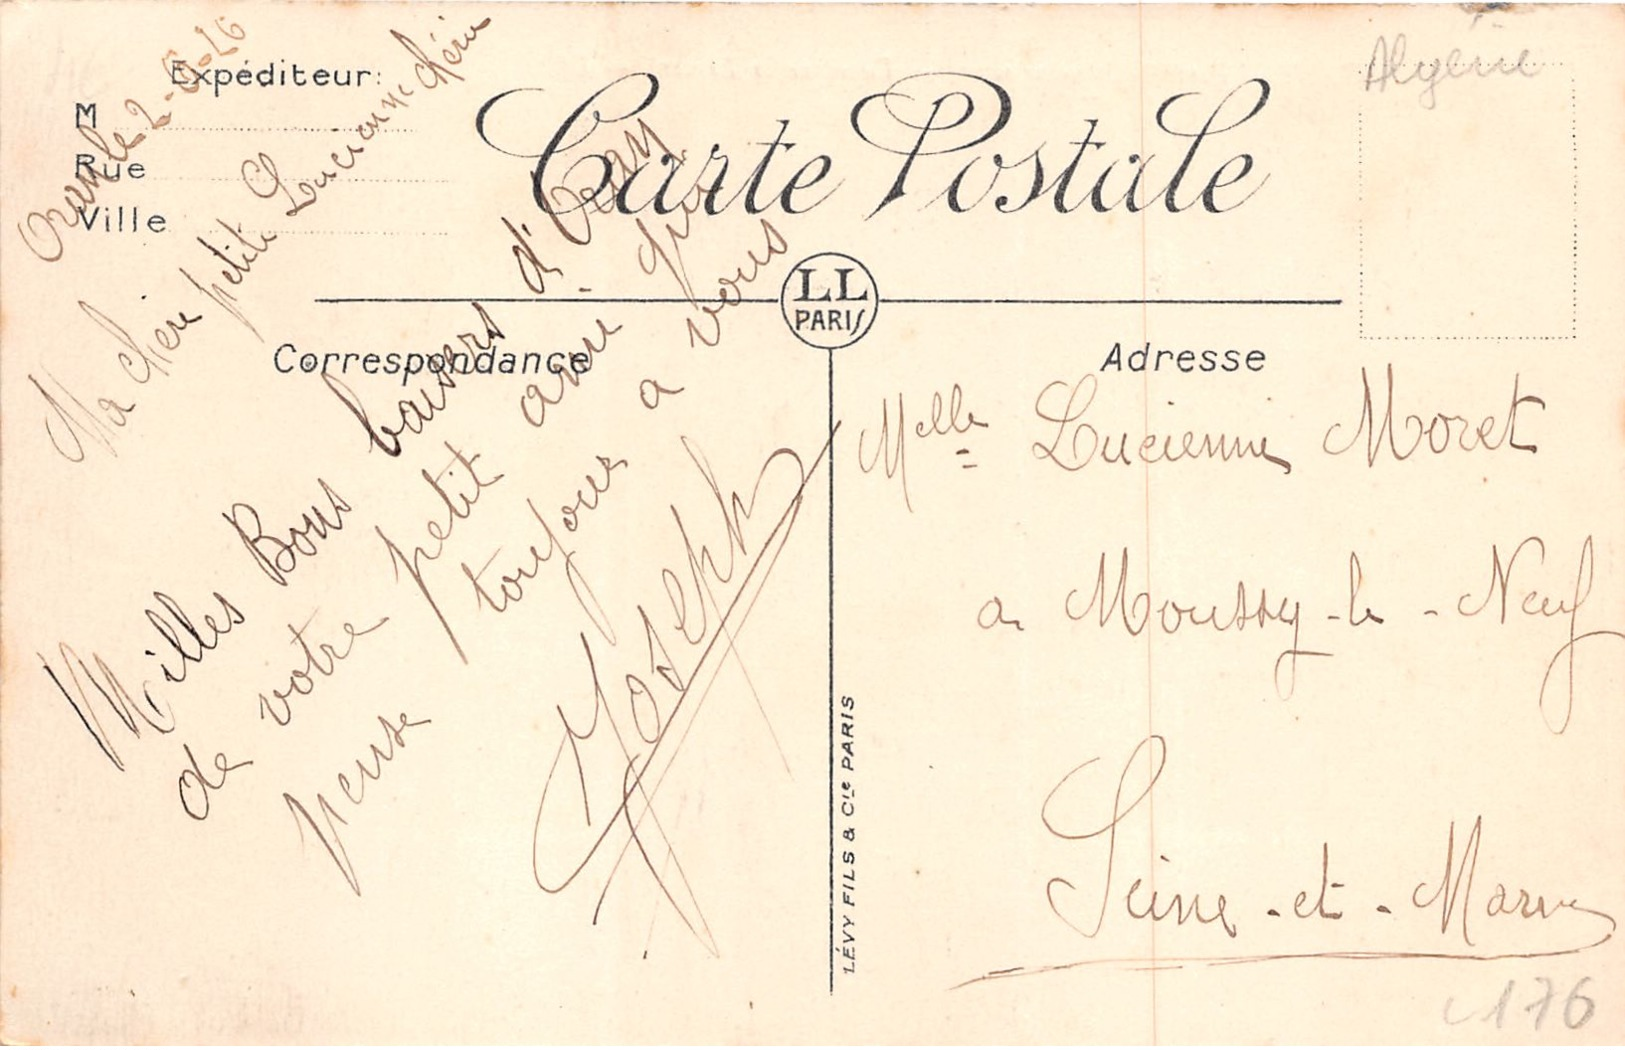 Expéditeur:
M
Rue
Ville
Carte Postale
Algérie
LL
PARIS
Correspondance
Adresse
Oran le 2-9-26
Ma chère petite Lucienne chérie
Milles Bons baisers d'Oran
de votre petit amie qui
pense toujours a vous
Joseph
Melle Lucienne Moret
a Moussy-le-Neuf
Seine-et-Marne
LÉVY FILS & Cie PARIS
176